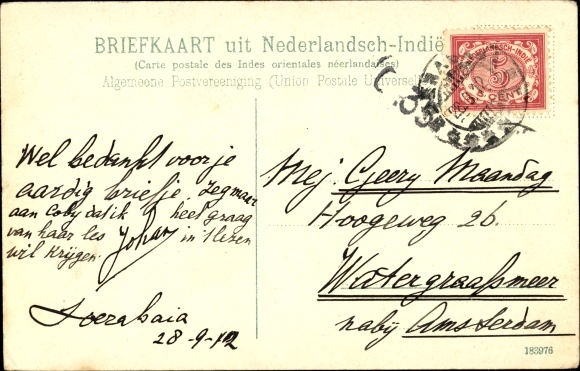 BRIEFKAART uit Nederlandsch-Indië
(Carte postale des Indes orientales néerlandaises)
Algemeene Postvereeniging (Union Postale Universelle)
5
CENT
Wel bedankt voor je
aardig briefje, zeg maar
aan Coby dat ik heel graag
van haar les in 't lezen
wil krijgen. Johan
Soerabaia
28-9-12
Mej. Geery Maandag
Hoogeweg 26.
Watergraafsmeer
nabij Amsterdam
183976